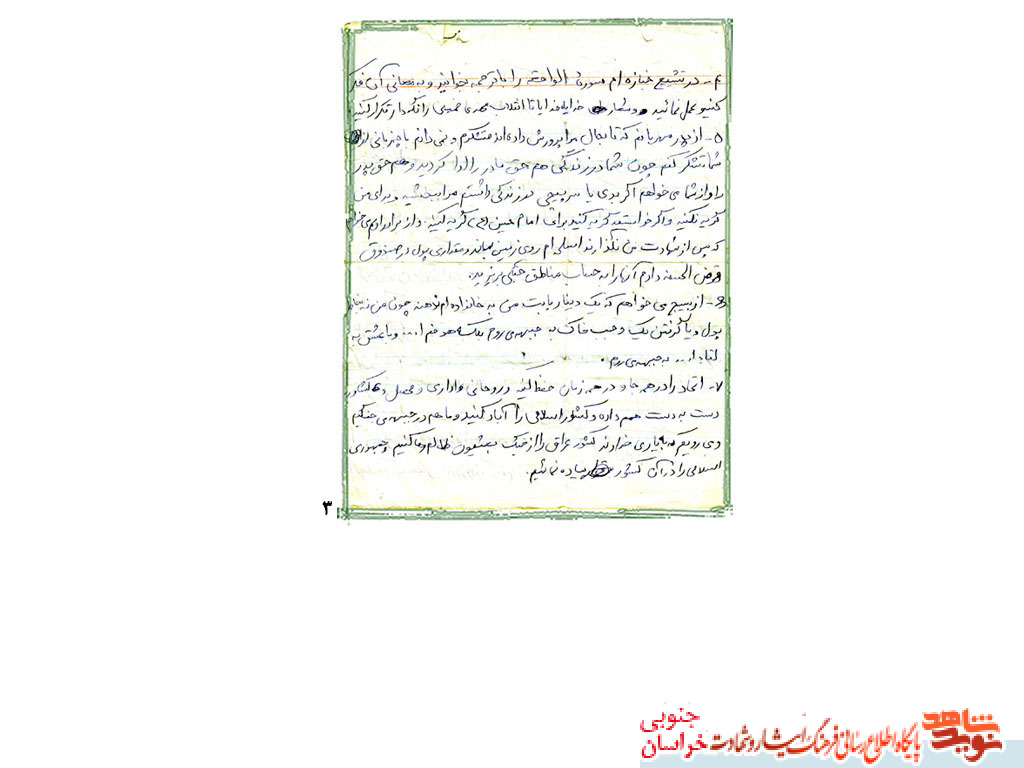 ۴- در تشییع جنازه ام سورهٔ الواقعه را با ترجمه بخوانید و به معانی آن فکر
کنید و عمل نمائید و شعار خدایا خدایا تا انقلاب مهدی خمینی را نگه دار تکرار کنید
۵- از پدر مهربانم که تا بحال مرا پرورش داده اند متشکرم و نمی دانم با چه زبانی از
شما تشکر کنم چون شما در زندگی هم حق مادر را ادا کردید و هم حق پدر
را و از شما می خواهم اگر بدی یا سرپیچی در زندگی داشتم مرا ببخشید و برای من
گریه نکنید و اگر خواستید گریه کنید برای امام حسین (ع) گریه کنید و از برادرانم می خواهم
که پس از شهادت من نگذارند اسلحه ام روی زمین بماند و مقداری پول در صندوق
قرض الحسنه دارم آنرا به حساب مناطق جنگی بریزید.
۶- از بسیج می خواهم که یک دینار بابت من به خانواده ام ندهند چون من نه بخاطر
پول و یا گرفتن یک وجب خاک به جبهه می روم بلکه هدفم ا... و با عشق به
لقاء ا... به جبهه می روم.
۷- اتحاد را در همه جا و در همه زمان حفظ کنید و روحانی و اداری و محصل و کشاورز
دست به دست هم داده و کشور اسلامی را آباد کنید و ما هم در جبهه می جنگیم
و می رویم که به یاری خداوند کشور عراق را از چنگ بعثیون ظالم رها کنیم و جمهوری
اسلامی را در آن کشور پیاده نمائیم.
۳
نوید شاهد
پایگاه اطلاع رسانی فرهنگ ایثار و شهادت
خراسان جنوبی